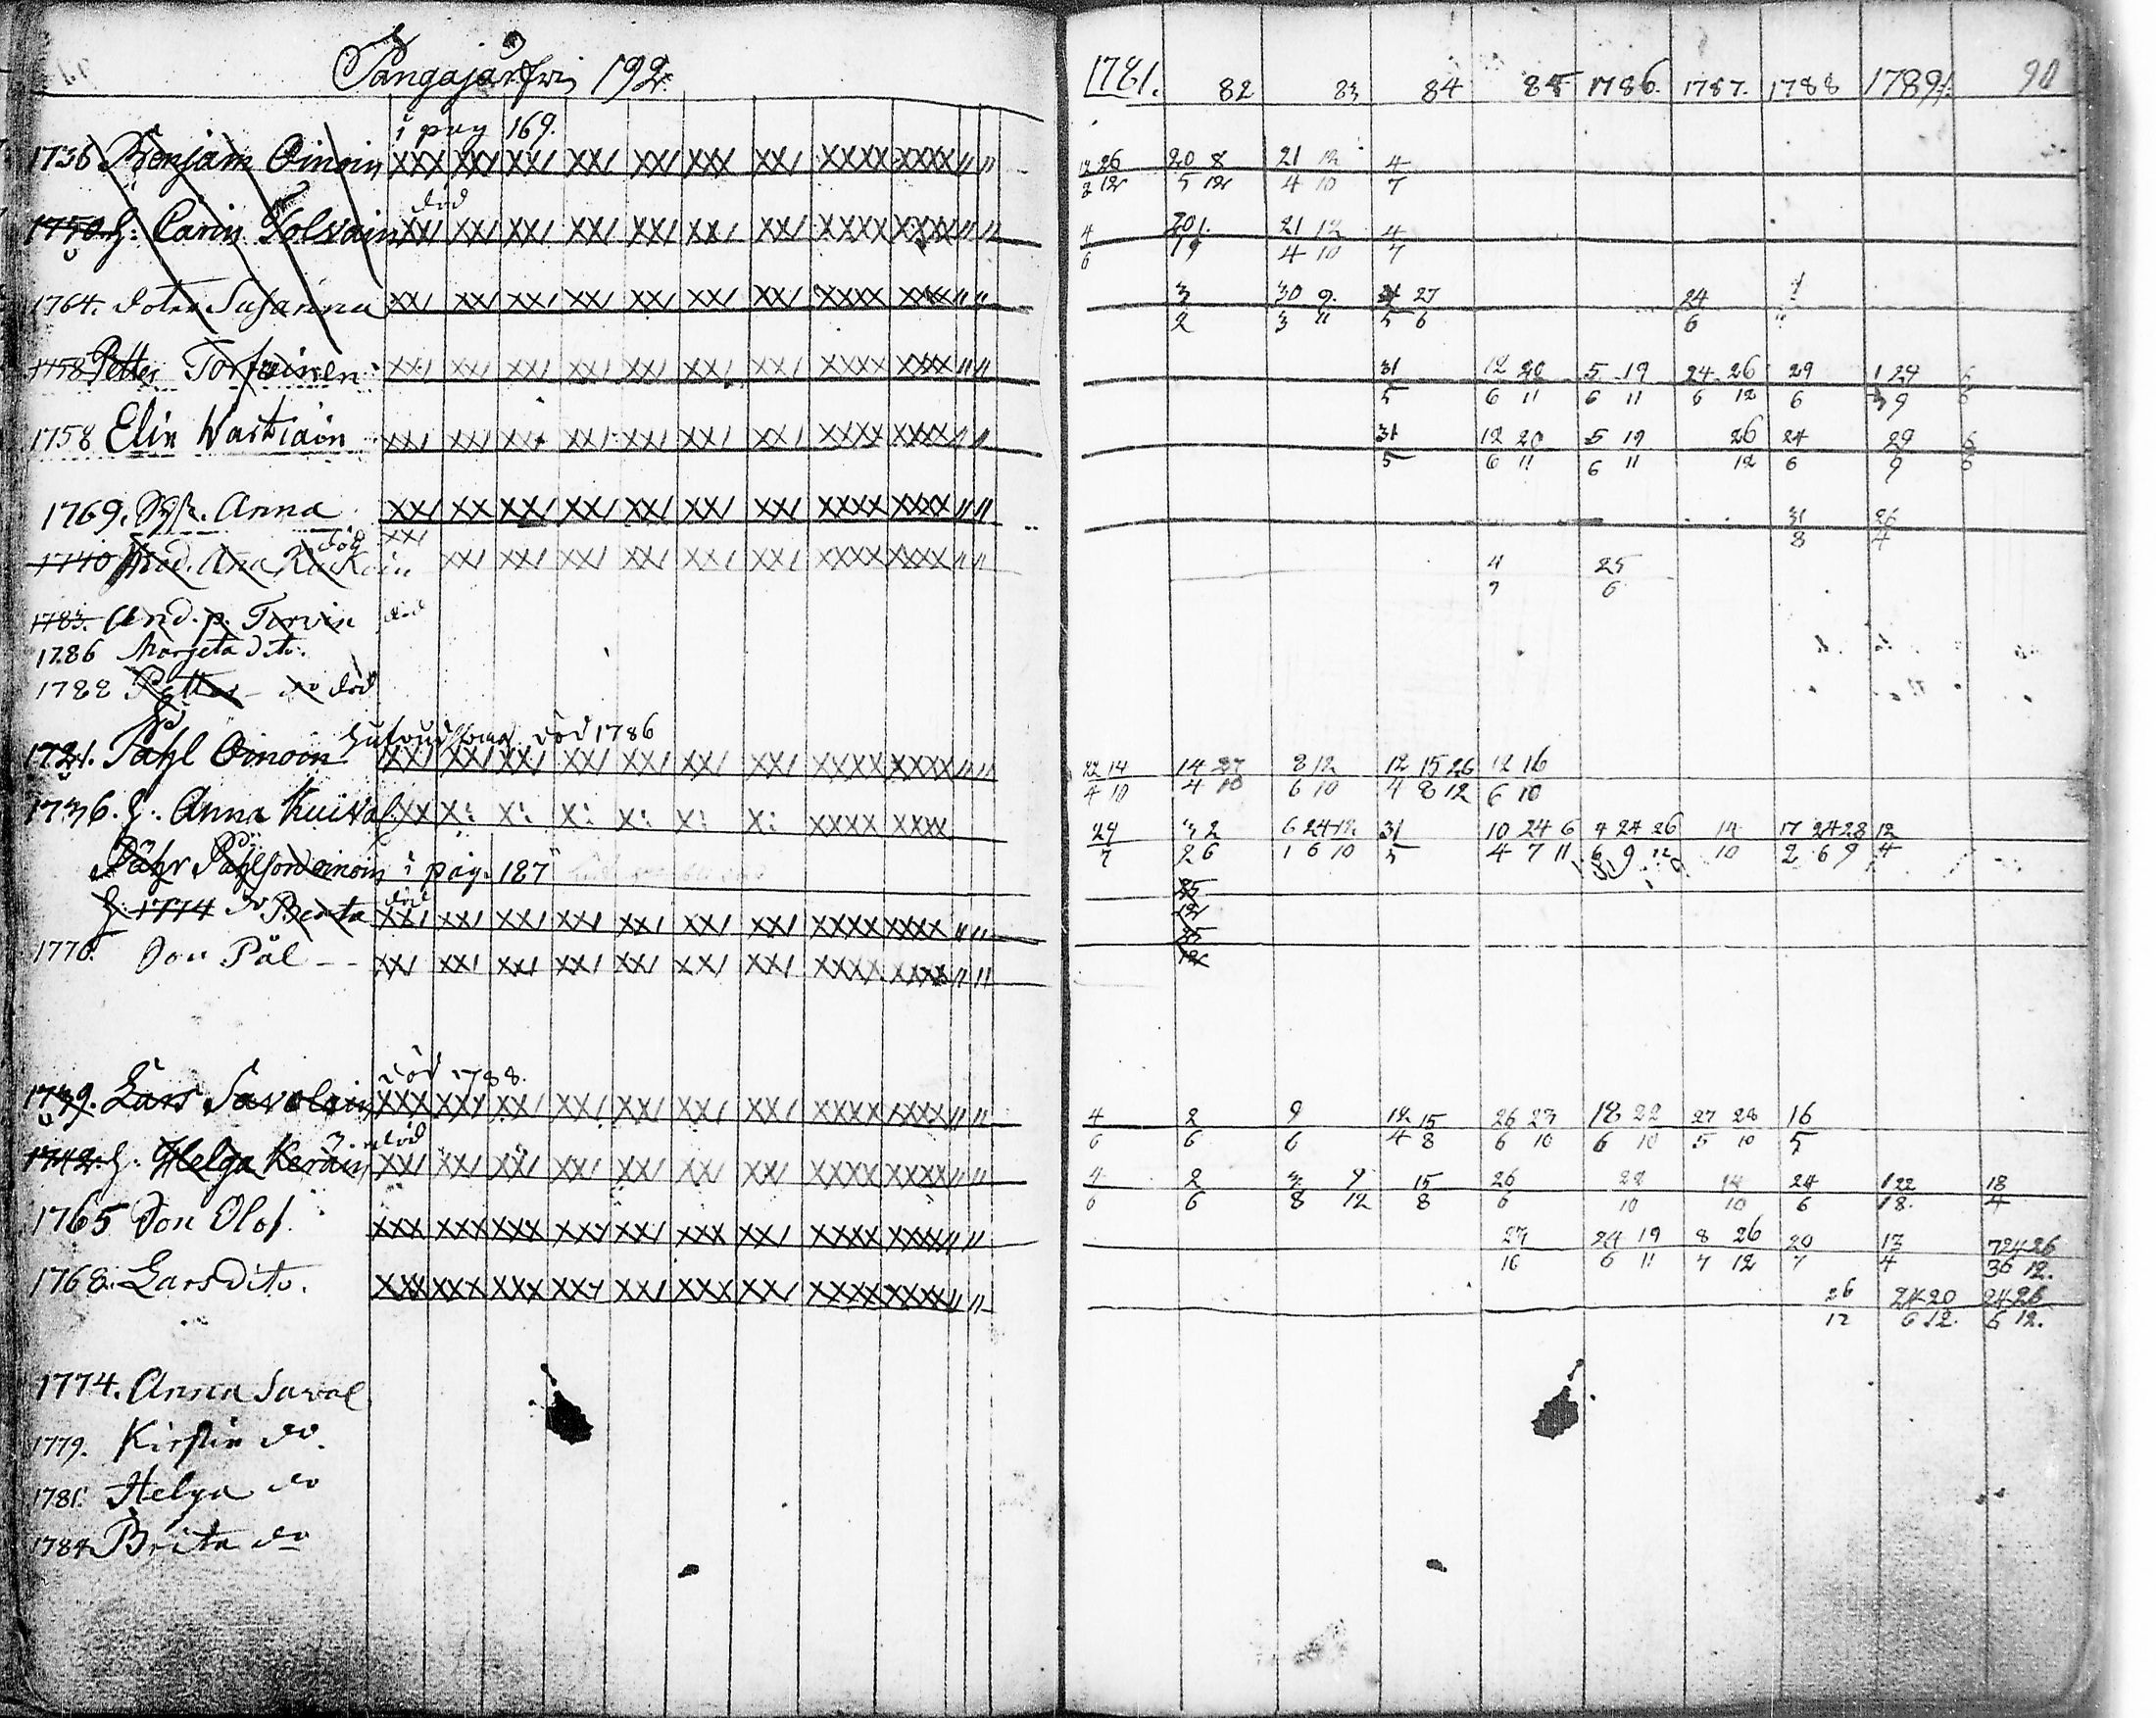 Pangajärfwi 192.
i pag 169.
1736 Benjam Oinoin XXX XX/ XX/ XX/ XX/ XX/ XX/ XXXX XXXX // //
död
1750 h: Carin Holvain XX/ XX/ XX/ XX/ XX/ XX/ XX/ XXXX XXXX // //
1764. doter Susanna XX/ XX/ XX/ XX/ XX/ XX/ XX/ XXXX XXXX // //
1758 Petter Torfwinen XX/ XX/ XX/ XX/ XX/ XX/ XX/ XXXX XXXX // //
1758 Elin Wastiain XX/ XX/ XX/ XX/ XX/ XX/ XX/ XXXX XXXX // //
1769. Sys. Anna XX/ XX/ XX/ XX/ XX/ XX/ XX/ XXXX XXXX // //
död XX/
1710 Mod. Ana XX/ XX/ XX/ XX/ XX/ XX/ XXXX XXXX // //
1783. And. p. Torvin död
1786 Margeta dito.
1788 Petter do död
död 1786
1721. Påhl Oinoin XX/ XX/ XX/ XX/ XX/ XX/ XX/ XXXX XXXX // //
1736. h: Anna Kuival XX X: X: X: X: X: X: XXXX XXXX
Påhr Påhlson Oinoin i pag. 187
död
h. 1774 do Berta XX/ XX/ XX/ XX/ XX/ XX/ XX/ XXXX XXXX // //
1776. Son Pål -- XX/ XX/ XX/ XX/ XX/ XX/ XX/ XXXX XXXX // //
död 1788.
1739. Lars Savolain XXX XXX XX/ XX/ XX/ XX/ XX/ XXXX XXXX // //
död
1742. h: Helga Keräin XX/ XX/ XX/ XX/ XX/ XX/ XX/ XXXX XXXX // //
1765 Son Olof. XXX XXX XXX XXX XX/ XXX XX/ XXXX XXXX // //
1768. Lars dito. XXX XXX XXX XXX XX/ XXX XX/ XXXX XXXX // //
1774. Anna Savol
1779. Kirstin do.
1781. Helga do
1784 Brita do
1781. 82 83 84 85 1786. 1787. 1788 1789. 90
12 26 20 8 21 12 4
3 12 5 12 4 10 7
4 20 1. 21 12 4
6 19 4 10 7
3 30 9. 27 24
2 3 11 5 6 6
31 12 20 5 19 24 26 29 1 24 6
5 6 11 6 11 6 12 6 3 9 6
31 12 20 5 19 26 24 29 6
5 6 11 6 11 12 6 9 6
31 26
8 4
4 25
7 6
12 14 14 27 8 12 12 15 26 12 16
4 10 4 10 6 10 4 8 12 6 10
29 3 2 6 24 12 31 10 24 6 9 24 26 14 17 24 28 12
7 2 6 1 6 10 5 4 7 11 6 9 12 10 2 6 9 4
25
12
25
12
4 2 9 12 15 26 27 18 22 27 28 16
6 6 6 4 8 6 10 6 10 5 10 5
4 2 3 9 15 26 22 14 24 1 22 18
6 6 8 12 8 6 10 10 6 18. 4
27 24 19 8 26 20 13 7 24 26
10 6 11 7 12 7 4 3 6 12.
26 24 20 24 26
12 6 12. 6 12.